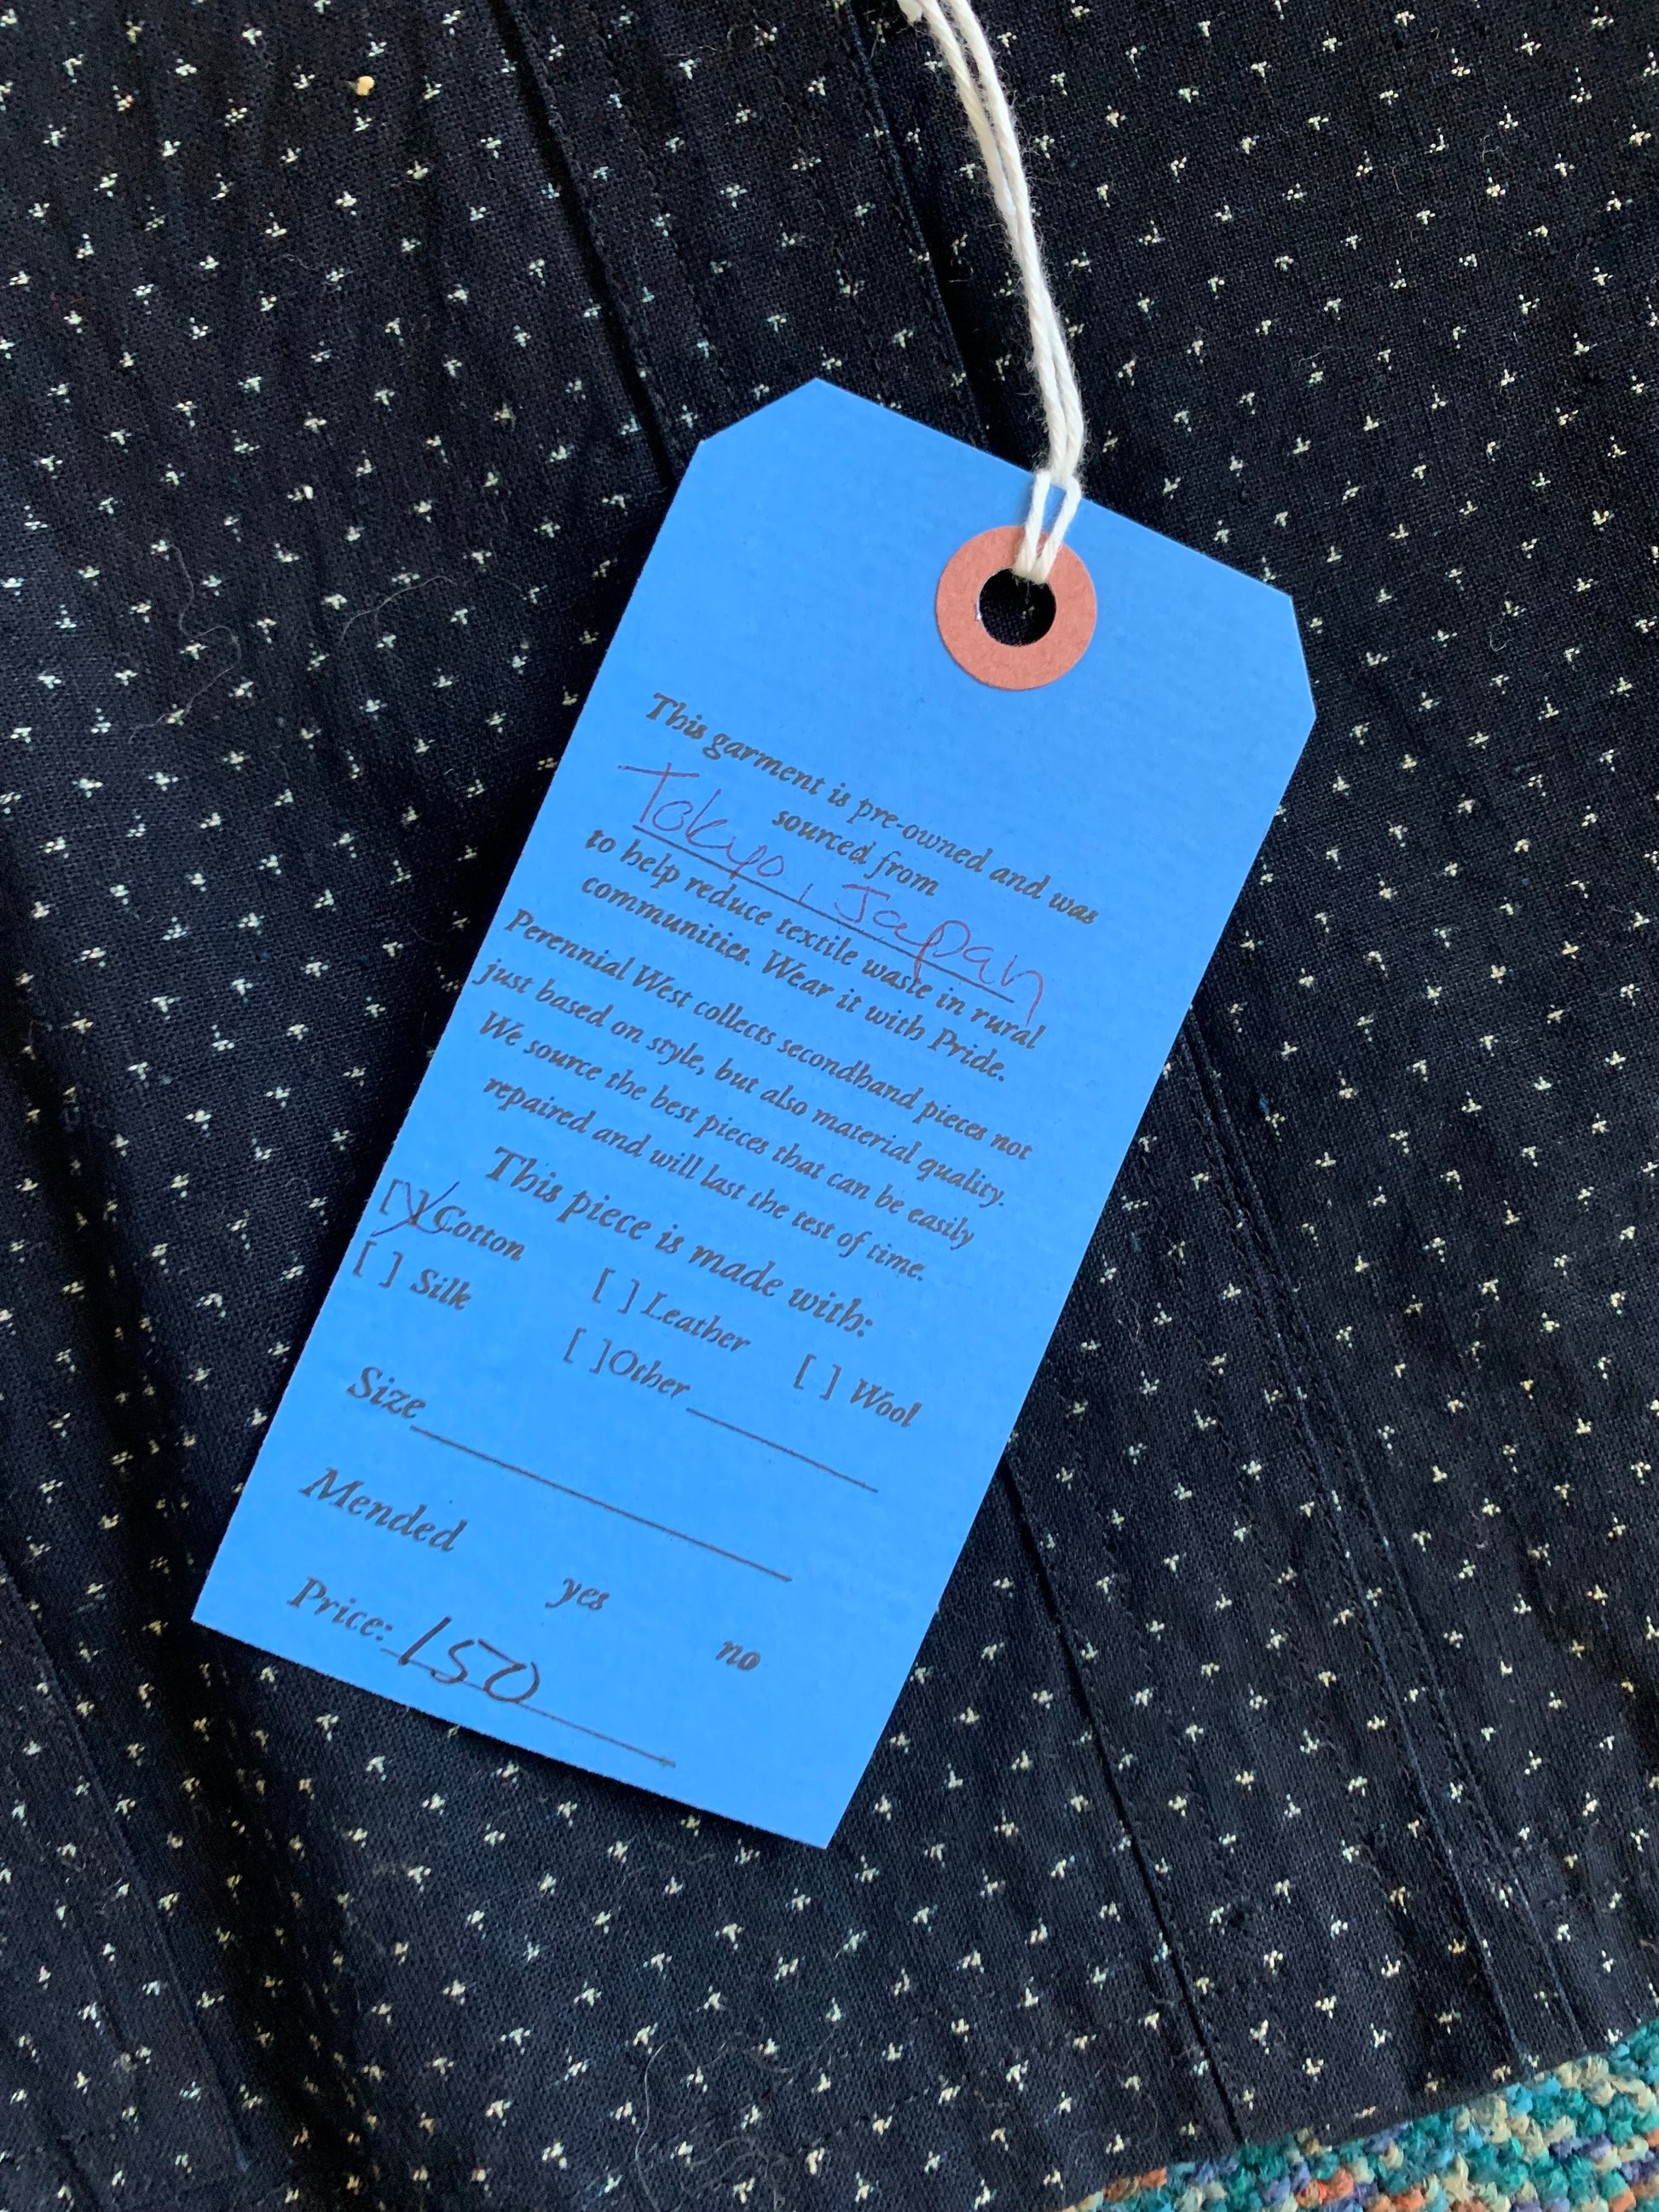 This garment is pre-owned and was
sourced from
Tokyo, Japan
to help reduce textile waste in rural
communities. Wear it with Pride.
Perennial West collects secondhand pieces not
just based on style, but also material quality.
We source the best pieces that can be easily
repaired and will last the test of time.
This piece is made with:
[X] Cotton [ ] Leather [ ] Wool
[ ] Silk [ ] Other
Size
Mended yes no
Price: 150